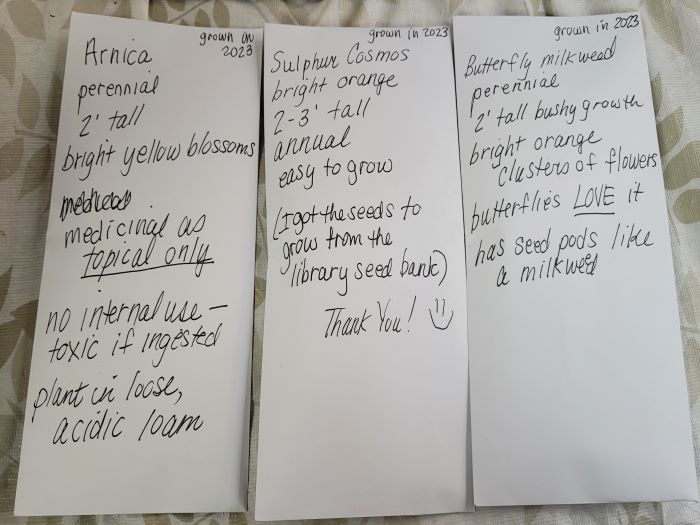 Arnica
grown in
2023
perennial
2' tall
bright yellow blossoms
medicinal as
topical only
no internal use -
toxic if ingested
plant in loose,
acidic loam
grown in 2023
Sulphur Cosmos
bright orange
2-3' tall
annual
easy to grow
(I got the seeds to
grow from the
library seed bank)
Thank You!
grown in 2023
Butterfly milkweed
perennial
2' tall bushy growth
bright orange
clusters of flowers
butterflies LOVE it
has seed pods like
a milkweed